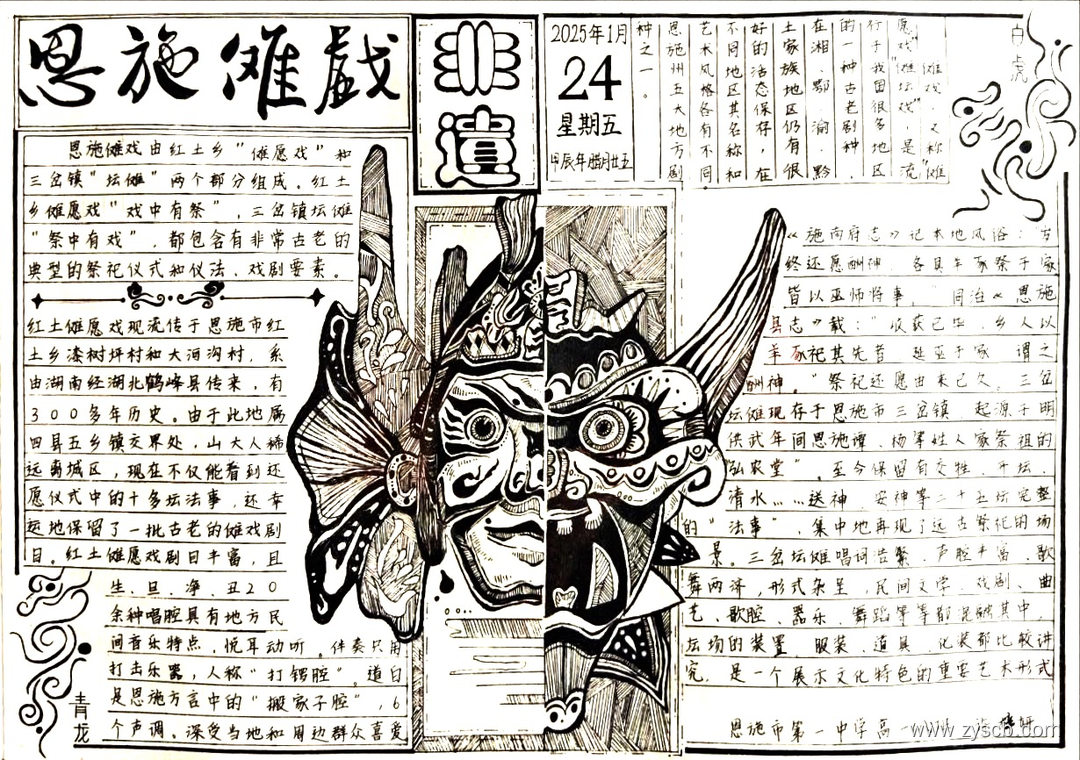 恩施傩戲
非遺
2025年1月
24
星期五
甲辰年腊月廿五
傩戏，又称"傩
愿戏""傩坛戏"，是流
行于我国很多地区
的一种古老剧种，
在湘、鄂、渝、黔
土家族地区仍有很
好的活态保存，在
不同地区其名称和
艺术风格各有不同，
恩施州五大地方剧
种之一。
白虎
恩施傩戏由红土乡"傩愿戏"和
三岔镇"坛傩"两个部分组成。红土
乡傩愿戏"戏中有祭"，三岔镇坛傩
"祭中有戏"，都包含有非常古老的
典型的祭祀仪式和仪法、戏剧要素。
红土傩愿戏现流传于恩施市红
土乡漆树坪村和大河沟村，系
由湖南经湖北鹤峰县传来，有
300多年历史。由于此地属
四县五乡镇交界处，山大人稀
远离城区，现在不仅能看到还
愿仪式中的十多坛法事，还幸
运地保留了一批古老的傩戏剧
目。红土傩愿戏剧目丰富，且
生、旦、净、丑20
余种唱腔具有地方民
间音乐特点，悦耳动听。伴奏只用
打击乐器，人称"打锣腔"。道白
是恩施方言中的"搬家子腔"，6
个声调。深受当地和周边群众喜爱
青龙
《施南府志》记本地风俗："岁
终还愿酬神，各具羊豕祭于家
皆以巫师将事，"同治《恩施
县志》载："收获已毕，乡人以
羊豕祀其先者，延巫于家，谓之
酬神。"祭祀还愿由来已久。三岔
坛傩现存于恩施市三岔镇，起源于明
洪武年间恩施谭、杨等姓人家祭祖的
"弘农堂"。至今保留有交牲、开坛、
清水……送神、安神等二十五坛完整
的"法事"，集中地再现了远古祭祀的场
景。三岔坛傩唱词浩繁，声腔丰富，歌
舞两济，形式杂呈，民间文学、戏剧、曲
艺、歌腔、器乐、舞蹈等等都混融其中，
坛场的装置、服装、道具、化装都比较讲
究，是一个展示文化特色的重要艺术形式
恩施市第一中学高一
www.zyscb.com